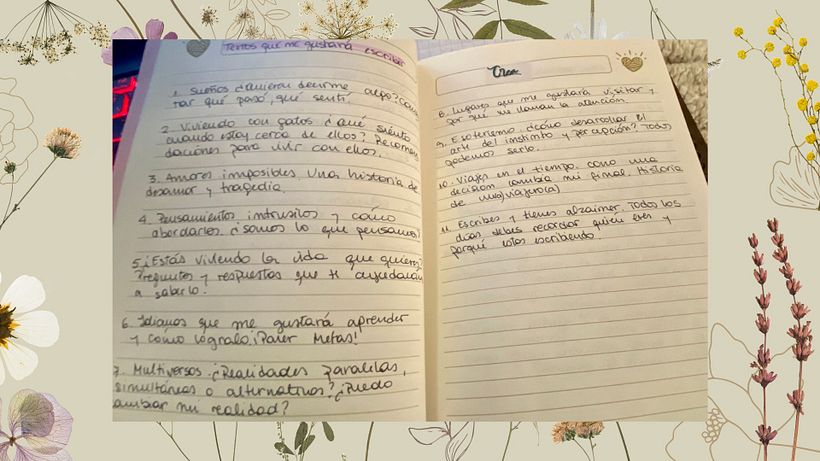 Textos que me gustaría escribir
1. Sueños ¿Quieren decirme algo? Con
tar qué pasó, qué sentí.
2. Viviendo con gatos ¿qué siento
cuando estoy cerca de ellos? Recomen
daciones para vivir con ellos.
3. Amores imposibles Una historia de
desamor y tragedia.
4. Pensamientos intrusivos y cómo
abordarlos ¿somos lo que pensamos?
5. ¿Estás viviendo la vida que quieres?
Preguntas y respuestas que ti ayudarán
a saberlo.
6. Idiomas que me gustará aprender
y cómo lógralo ¡Poner Metas!
7. Multiversos. ¿Realidades Paralelas,
simultáneas o alternativas? ¿Puedo
cambiar mi realidad?
Crea
8. Lugares que me gustaría visitar y
por qué me llaman la atención.
9. Esoterismo ¿cómo desarrollar el
arte del instinto y percepción? Todos
podemos serlo.
10. Viajes en el tiempo. como una
decisión cambia mi final. Historia
de una viajero(a)
11. Escribes y tienes alzaimer. Todos los
días debes recordar quién eres y
porqué estás escribiendo.